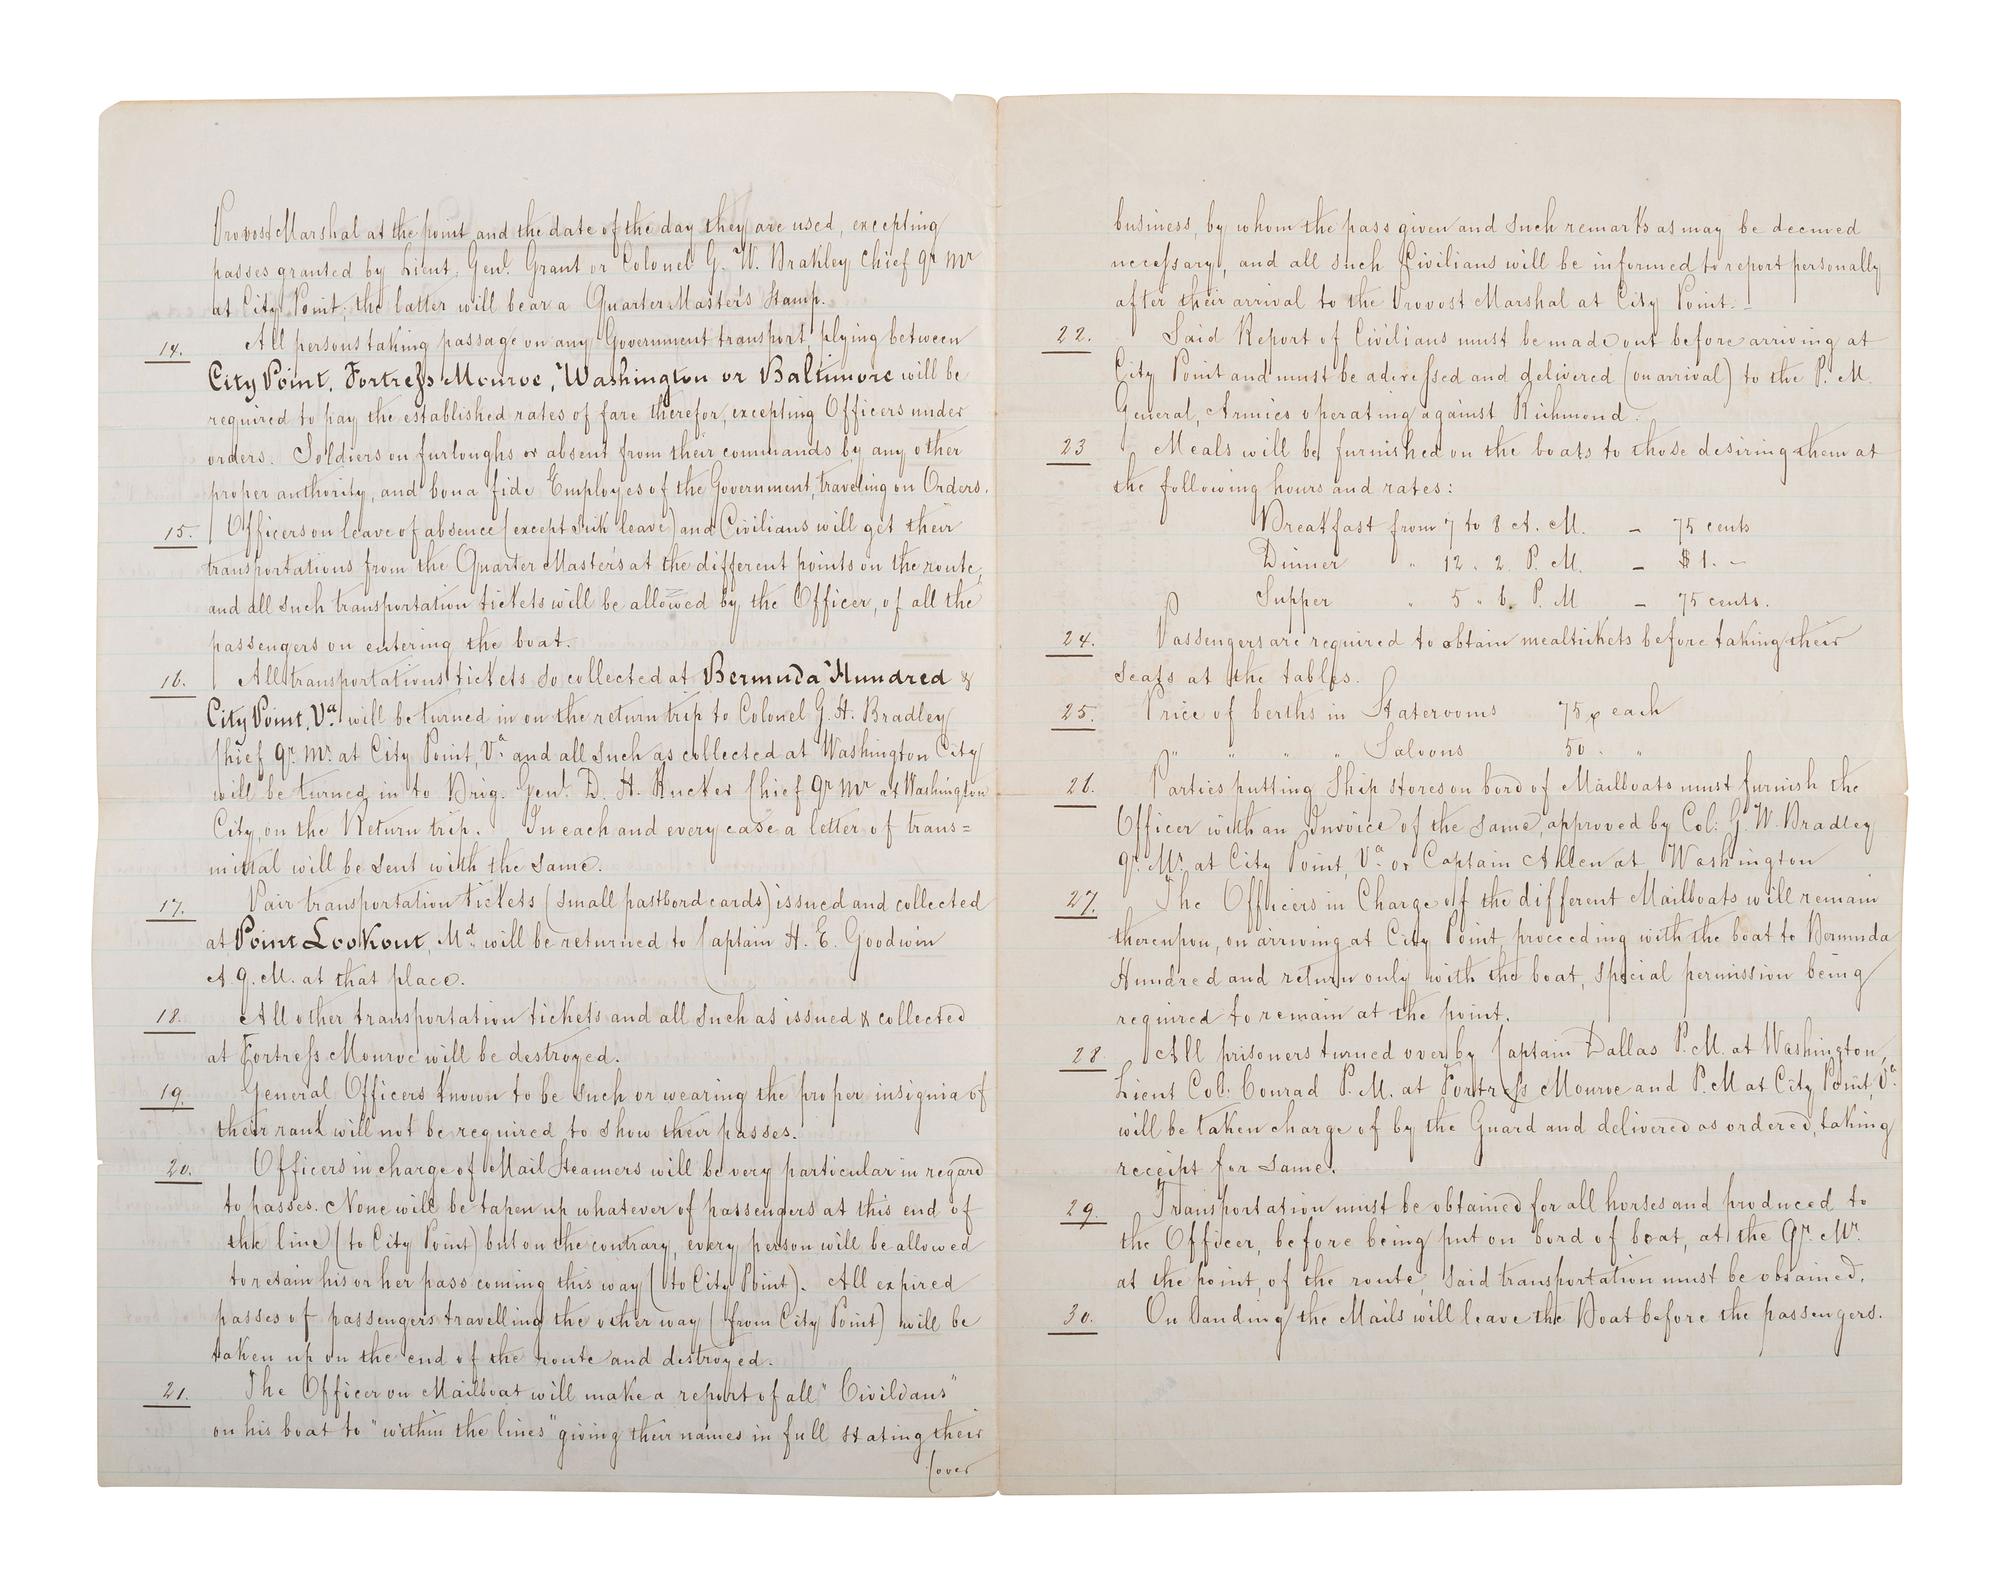 Provost Marshal at the point and the date of the day they are used, excepting
passes granted by Lieut. Genl. Grant or Colonel G. W. Brakley Chief qr mr
at City Point; the latter will bear a Quarter Master's Stamp.
14. All persons taking passage on any Government transport, plying between
City Point, Fortress Monroe, Washington or Baltimore will be
required to pay the established rates of fare therefor, excepting Officers under
orders. Soldiers on furloughs or absent from their commands by any other
proper authority, and bona fide Employes of the Government, traveling on Orders.
15. Officers on leave of absence (except sick leave) and Civilians will get their
transportations from the Quarter Masters at the different points on the route,
and all such transportation tickets will be allowed by the Officer, of all the
passengers on entering the boat.
16. All transportations tickets so collected at Bermuda Hundred &
City Point, Va. will be turned in on the return trip to Colonel G. H. Bradley
Chief qr. mr. at City Point, Va. and all such as collected at Washington City
will be turned in to Brig. Genl. D. H. Rucker Chief qr mr at Washington
City, on the Return trip. In each and every case a letter of trans=
mittal will be sent with the same.
17. Pair transportation tickets (small pastbord cards) issued and collected
at Point Lookout, Md. will be returned to Captain H. E. Goodwin
A. q. M. at that place.
18. All other transportation tickets and all such as issued & collected
at Fortress Monroe will be destroyed.
19. General Officers known to be such or wearing the proper insignia of
their rank will not be required to show their passes.
20. Officers in charge of Mail Steamers will be very particular in regard
to passes. None will be tapen up whatever of passengers at this end of
the line (to City Point) but on the contrary, every person will be allowed
to retain his or her pass coming this way (to City Point). All expired
passes of passengers travelling the other way (from City Point) will be
taken up on the end of the route and destroyed.
21. The Officer on Mailboat will make a report of all "Civilians"
on his boat to "within the lines" giving their names in full stating their
(over
business, by whom the pass given and such remarks as may be deemed
necessary, and all such Civilians will be informed to report personally
after their arrival to the Provost Marshal at City Point.
22. Said Report of Civilians must be made out before arriving at
City Point and must be adressed and delivered (on arrival) to the P. M.
General, Armies operating against Richmond.
23 Meals will be furnished on the boats to those desiring them at
the following hours and rates:
Breakfast from 7 to 8 A. M. – 75 cents
Dinner " 12 " 2 P. M. – $1. –
Supper " 5 " 6 P. M – 75 cents.
24. Passengers are required to obtain mealtickets before taking their
seats at the tables.
25. Price of berths in Staterooms 75¢ each
" " " " Saloons 50 " "
26. Parties putting Ship stores on bord of Mailboats must furnish the
Officer with an Invoice of the same, approved by Col: G. W. Bradley
qr. Mr. at City Point, Va. or Captain Allen at Washington
27. The Officers in Charge of the different Mailboats will remain
thereupon, on arriving at City Point, proceeding with the boat to Bermuda
Hundred and return only with the boat, special permission being
required to remain at the point.
28 All prisoners turned over by Captain Dallas P. M. at Washington,
Lieut Col: Conrad P. M. at Fortress Monroe and P. M at City Point, Va.
will be taken charge of by the Guard and delivered as ordered, taking
receipt for same.
29. Transportation must be obtained for all horses and produced to
the Officer, before being put on bord of boat, at the qr. Mr.
at the point, of the route, said transportation must be obtained.
30. On landing the Mails will leave the Boat before the passengers.